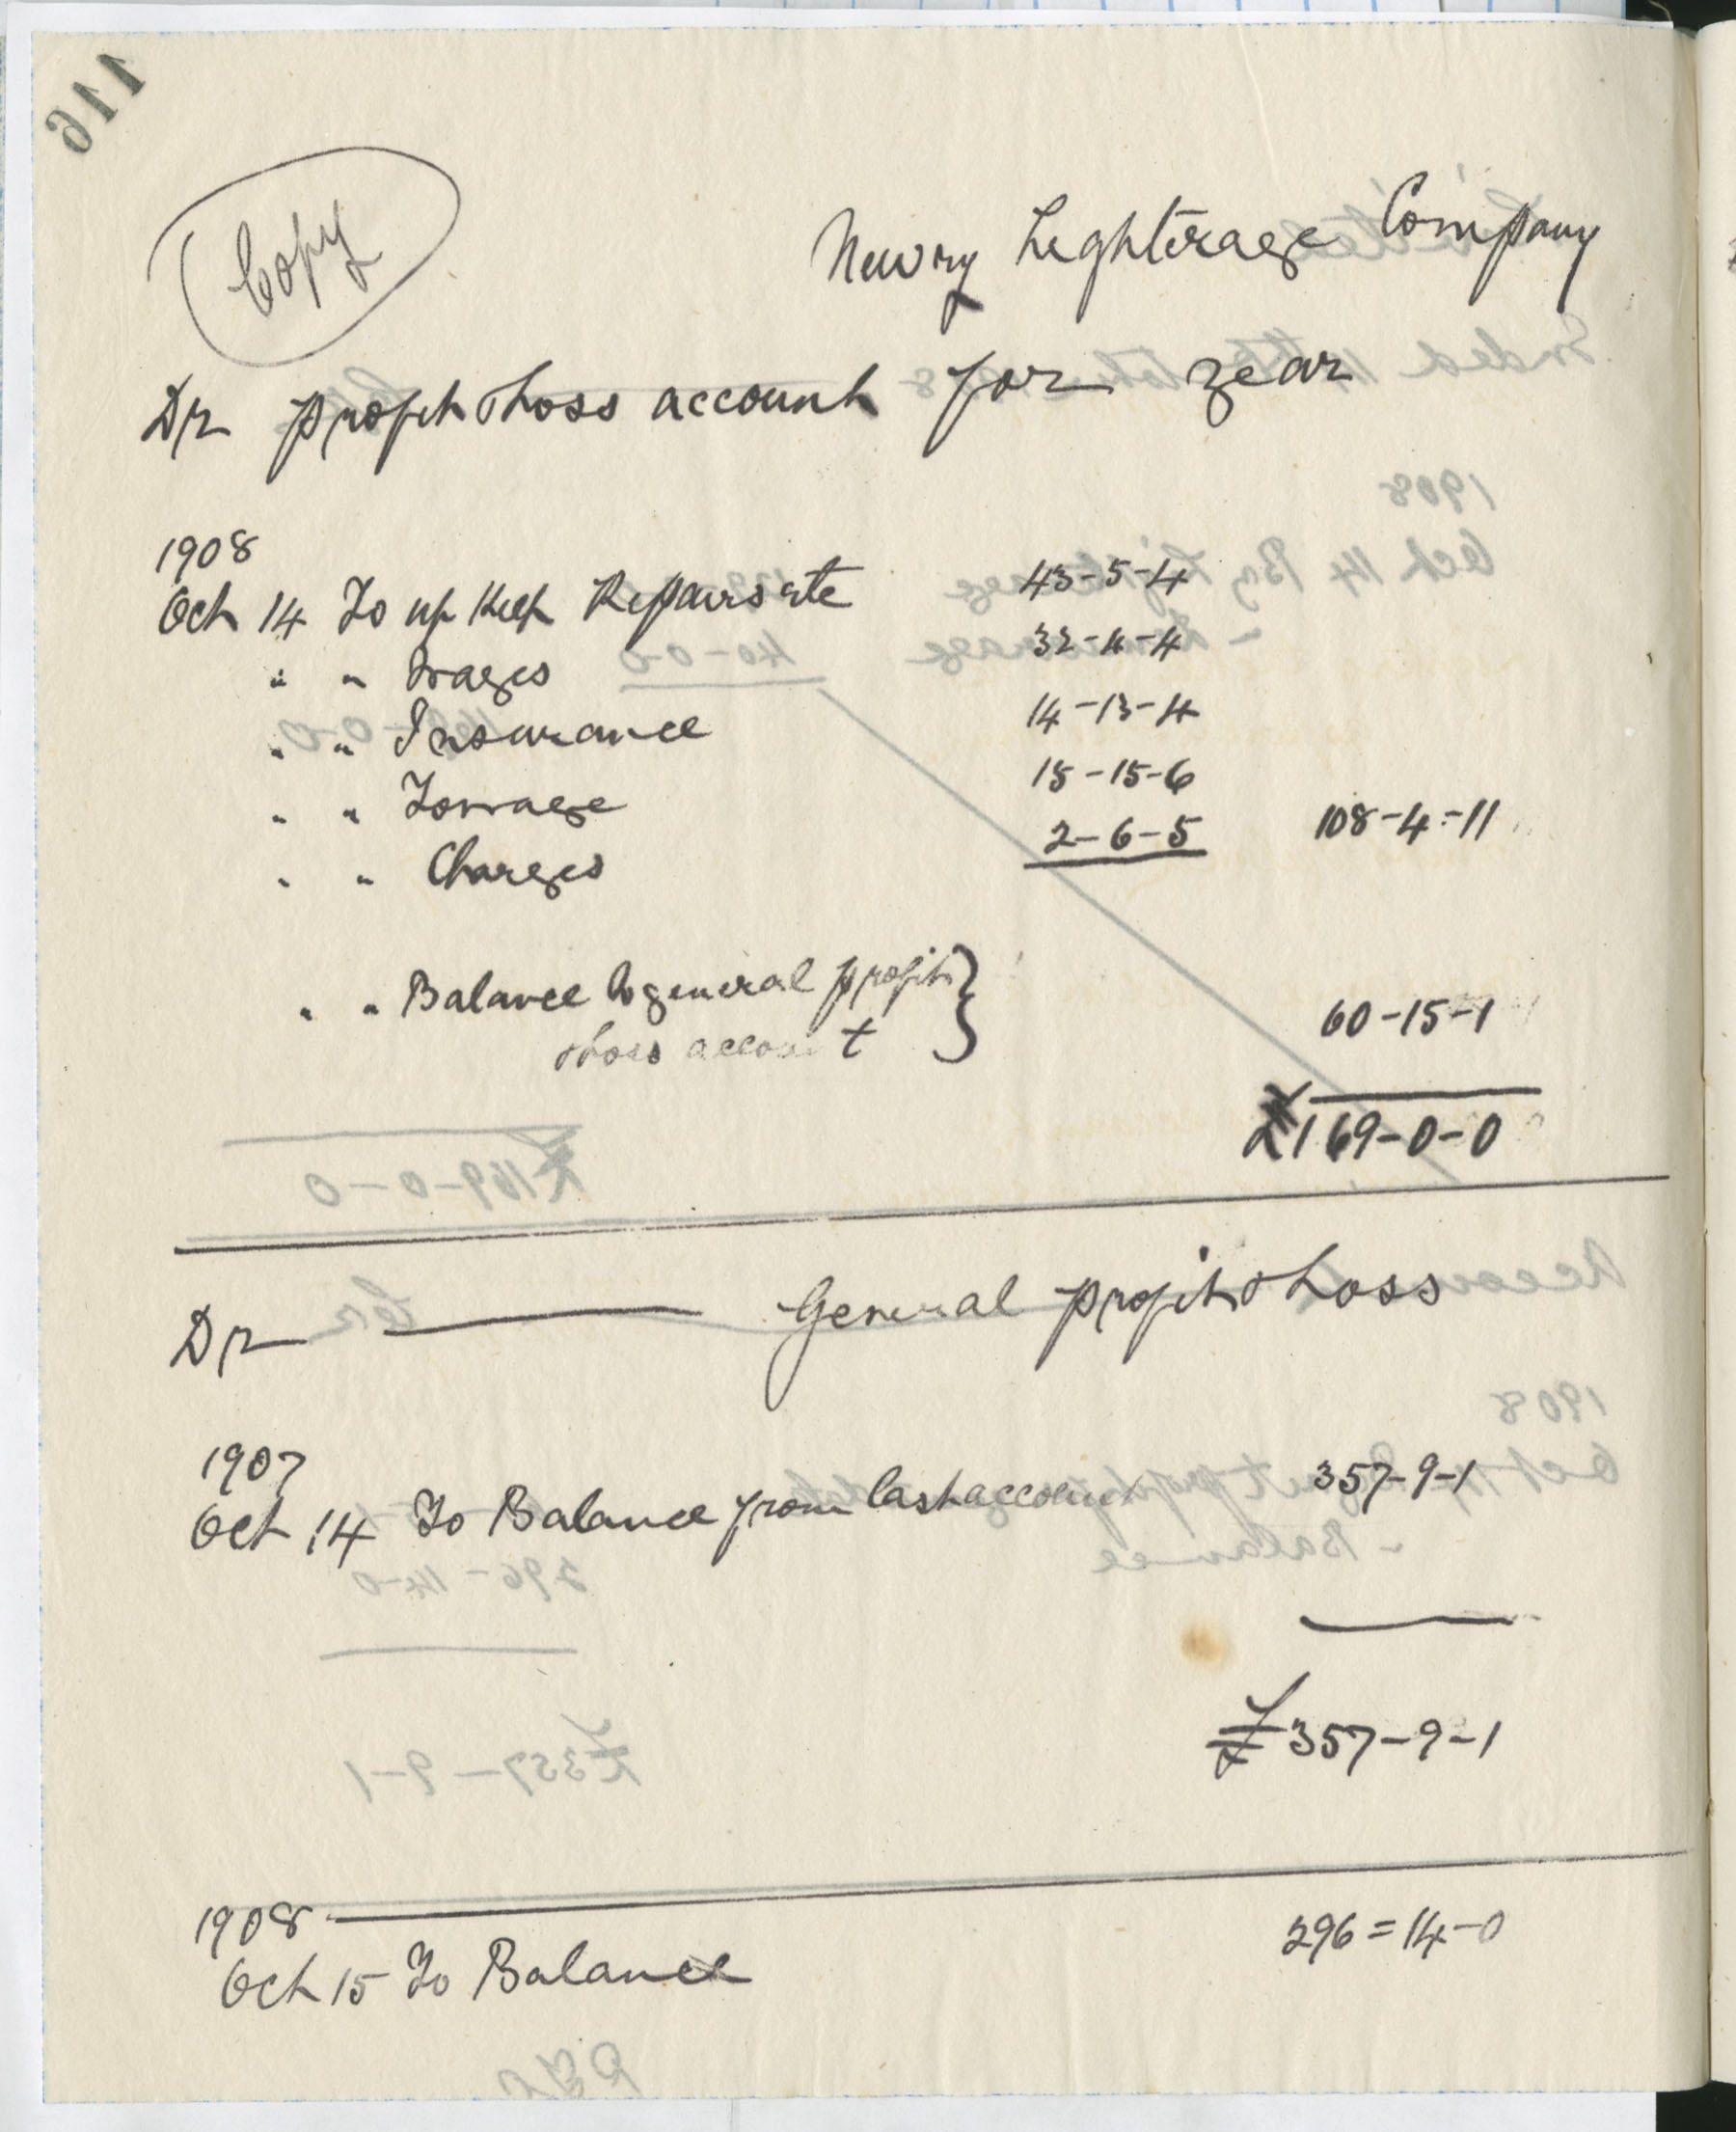 116
Copy
Newry Lighterage Company
Dr profit & Loss account for year
1908
Oct 14 To up Keep Repairs etc 43-5-4
" " Wages 32-4-4
" " Insurance 14-13-4
" " Towage 15-15-6
" " Charges 2-6-5 108-4-11
" " Balance to general profit
& loss account } 60-15-1
£169-0-0
Dr General profit & Loss
1907
Oct 14 To Balance from last account 357-9-1
£357-9-1
1908
Oct 15 To Balance 296=14-0